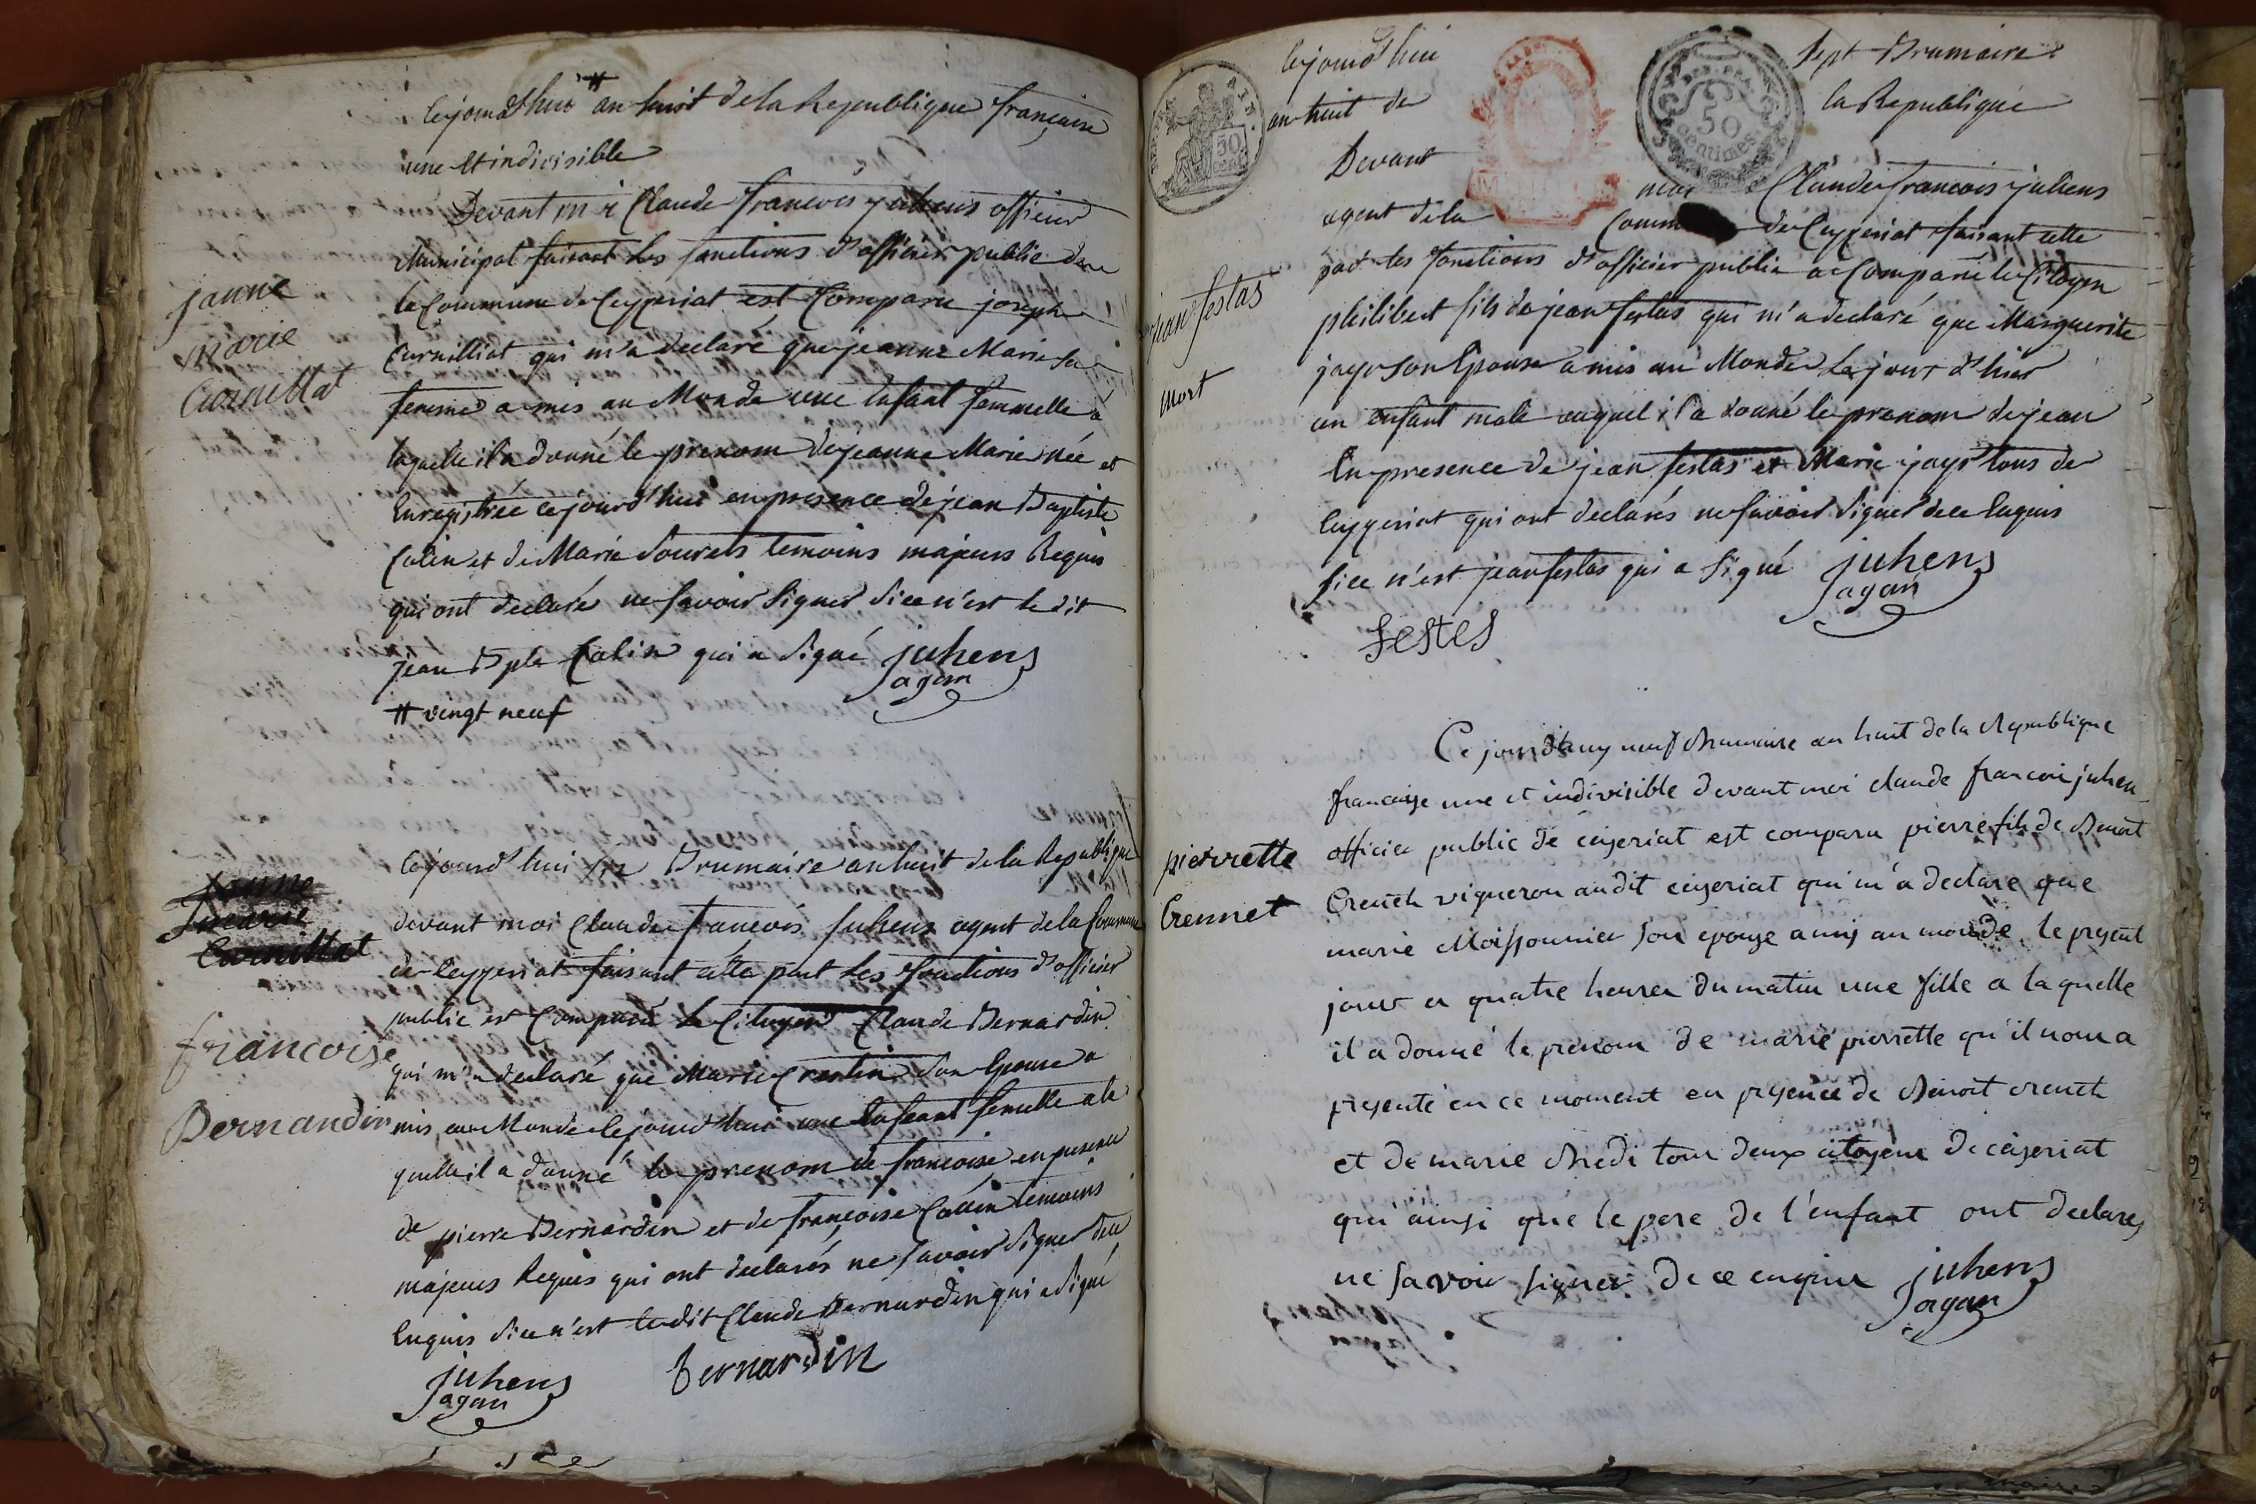 Cejourd'hui # an huit de la Republique française
une et indivisible
Devant moi Claude francois juhens officier
Municipal faisant les fonctions d'officier public de
la Commune de Ceyzeriat est Comparu joseph
Curnilliat qui m'a declaré que jeanne Marie sa
femme a mis au Monde une Enfant femmelle a
laquelle il a donné le prenom de jeanne Marie née et
Enregistrée cejourd'hui en presence de jean Baptiste
Colin et de Marie temoins majeurs Requis
qui ont declaré ne savoir signer si ce n'est le dit
jean Bpte Colin qui a signé juhens
agan
# vingt neuf
janne
marie
Curnillat
Cejourd'hui six Brumaire an huit de la Republique
devant moi Claude francois juhens agent de la Commune
de Ceyzeriat faisant cette part les fonctions d'officier
public est Comparu le Citoyen Claude Bernardin
qui m'a declaré que Marie son Epouse a
mis au Monde cejourd'hui une Enfant femelle a la
quelle il a donné le prenom de francoise en presence
de pierre Bernardin et de françoise Collin temoins
majeurs Requis qui ont declarés ne savoir signer de ce
Enquis si ce n'est ledit Claude Bernardin qui a signé
juhens
agan
bernardin
janne
marie
Curnillat
francoise
Bernandin
Cejourd'hui sept Brumaire
an huit de la Republique
Devant moi Claude francois juhens
agent de la Commune de Ceyzeriat faisant cette
part les fonctions d'officier public a Comparu le Citoyen
philibert fils de jean festas qui m'a declaré que Marguerite
jayr son Epouse a mis au Monde le jour d'hier
un enfant male auquel il a donné le prenom de jean
En presence de jean festas et Marie jayr tous de
Ceyzeriat qui ont declarés ne savoir signer de ce Enquis
si ce n'est jean festas qui a signé juhens
agan
festes
jean festas
mort
50
centimes
50
Ce jourd'huy neuf Brumaire an huit de la Republique
francaise une et indivisible devant moi claude francois juhen
officier public de ceyseriat est comparu pierre fils de Benoit
vigneron audit ceyseriat qui m'a declare que
marie Moissonnier son epouse a mis au monde le present
jour a quatre heures du matin une fille a laquelle
il a donné le prenom de marie pierrette qu'il nous a
presenté en ce moment en presence de Benoit
et de marie tous deux citoyens de ceyseriat
qui ainsi que le pere de l'enfant ont declares
ne savoir signer de ce enquis juhens
agan
pierrette
Crennet